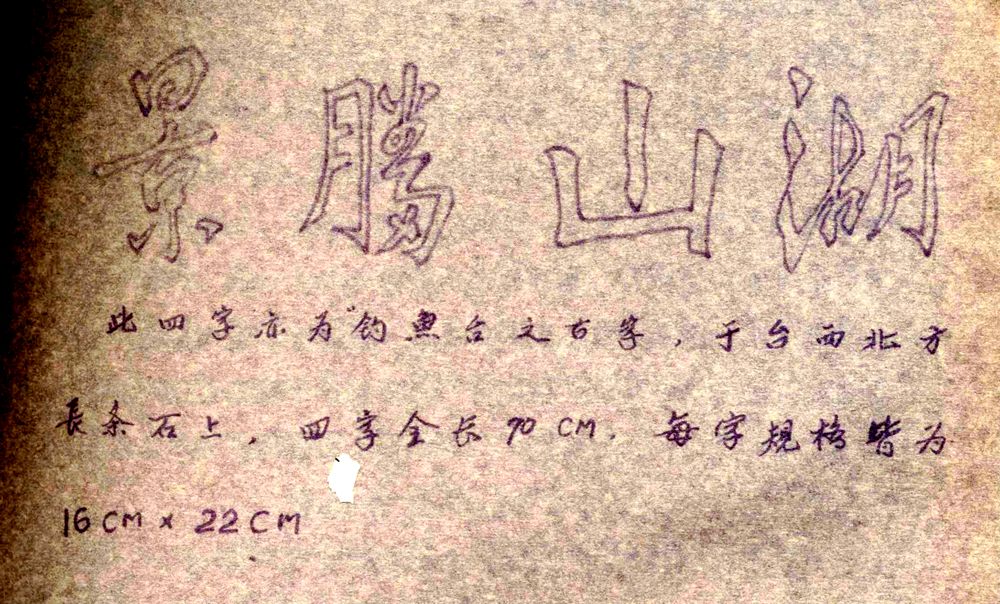 湖山勝景
此四字亦为"钓魚台之古字，于台西北方
長条石上，四字全长70 CM. 每字規格皆为
16CM x 22CM